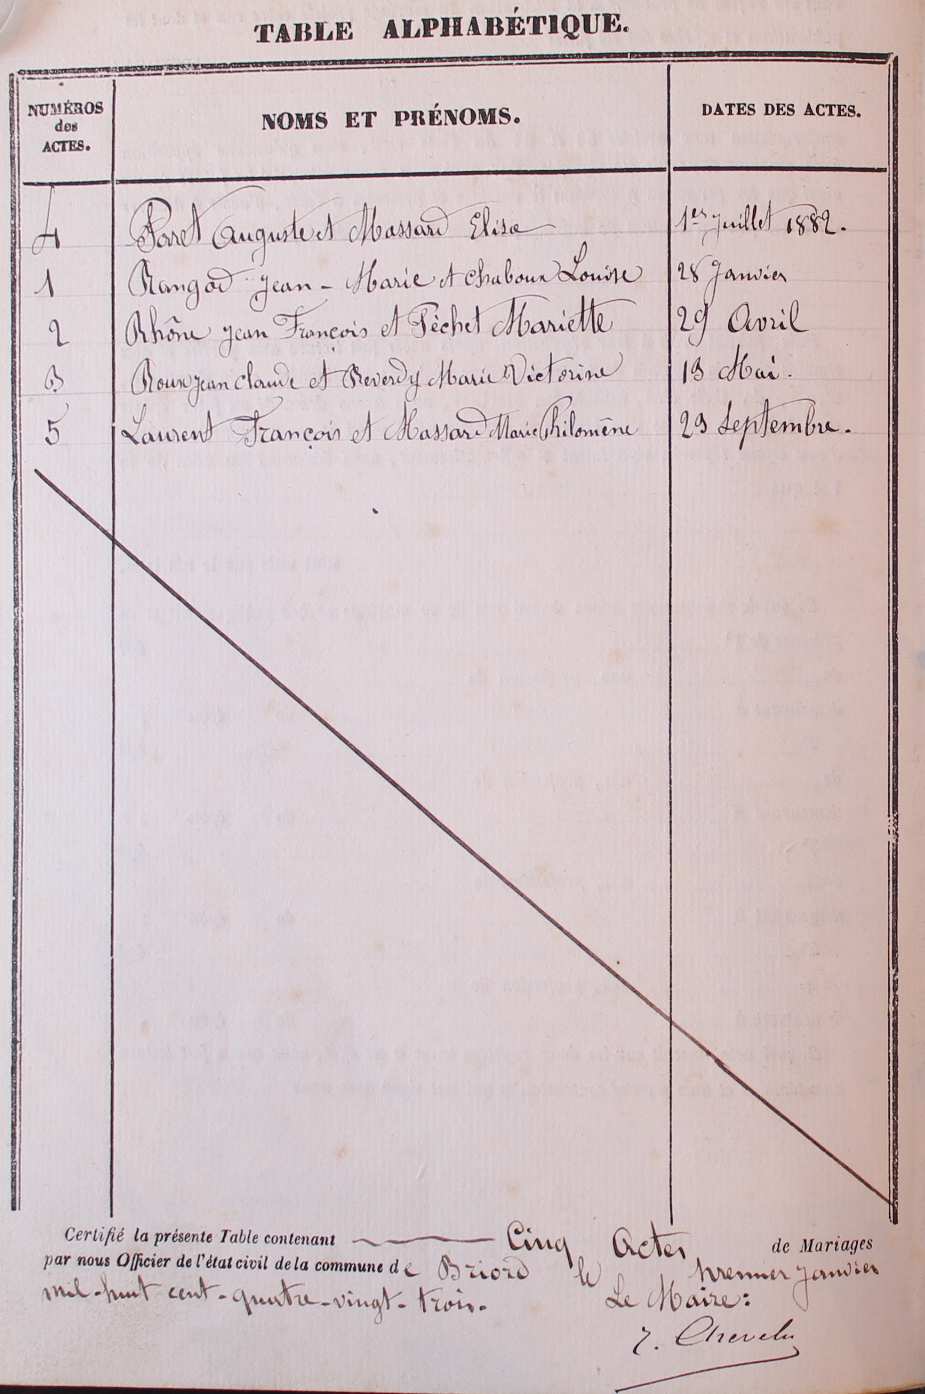 TABLE ALPHABÉTIQUE.
NUMÉROS des ACTES.
NOMS ET PRÉNOMS.
DATES DES ACTES.
4 Porret Auguste et Massard Elisa 1er Juillet 1882.
1 Rangod Jean-Marie et Chaboux Louise 28 Janvier
2 Rhône Jean François et Péchet Mariette 29 Avril
3 Roux Jean Claude et Reverdy Marie Victorine 13 Mai.
5 Laurent François et Massard Marie Philomène 23 Septembre.
Certifié la présente Table contenant Cinq Actes de Mariages
par nous Officier de l'état civil de la commune de Briord le premier Janvier
mil-huit cent-quatre-vingt-trois. Le Maire: